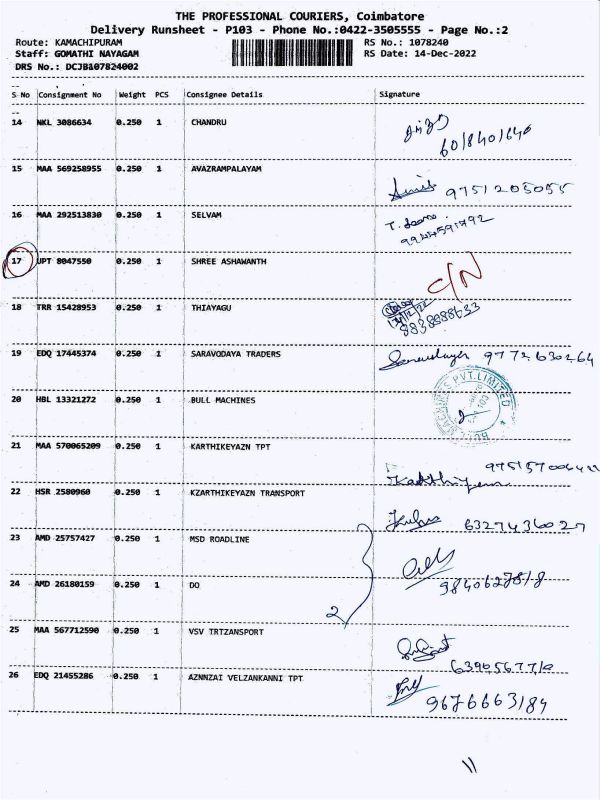 THE PROFESSIONAL COURIERS, Coimbatore
Delivery Runsheet - P103 - Phone No.:0422-3505555 - Page No.:2
Route: KAMACHIPURAM RS No.: 1078240
Staff: GOMATHI NAYAGAM RS Date: 14-Dec-2022
DRS No.: DCJB107824002
S No Consignment No Weight PCS Consignee Details Signature
14 NKL 3086634 0.250 1 CHANDRU
15 MAA 569258955 0.250 1 AVAZRAMPALAYAM
9751205055
16 MAA 292513830 0.250 1 SELVAM
17 UPT 8047550 0.250 1 SHREE ASHAWANTH
C/N
18 TRR 15428953 0.250 1 THIAYAGU
19 EDQ 17445374 0.250 1 SARAVODAYA TRADERS
9772630264
20 HBL 13321272 0.250 1 BULL MACHINES
BULL MACHINES PVT.LIMITED
21 MAA 570065209 0.250 1 KARTHIKEYAZN TPT
22 HSR 2580960 0.250 1 KZARTHIKEYAZN TRANSPORT
6327436027
23 AMD 25757427 0.250 1 MSD ROADLINE
24 AMD 26180159 0.250 1 DO
2
25 MAA 567712590 0.250 1 VSV TRTZANSPORT
26 EDQ 21455286 0.250 1 AZNNZAI VELZANKANNI TPT
9676663184
11